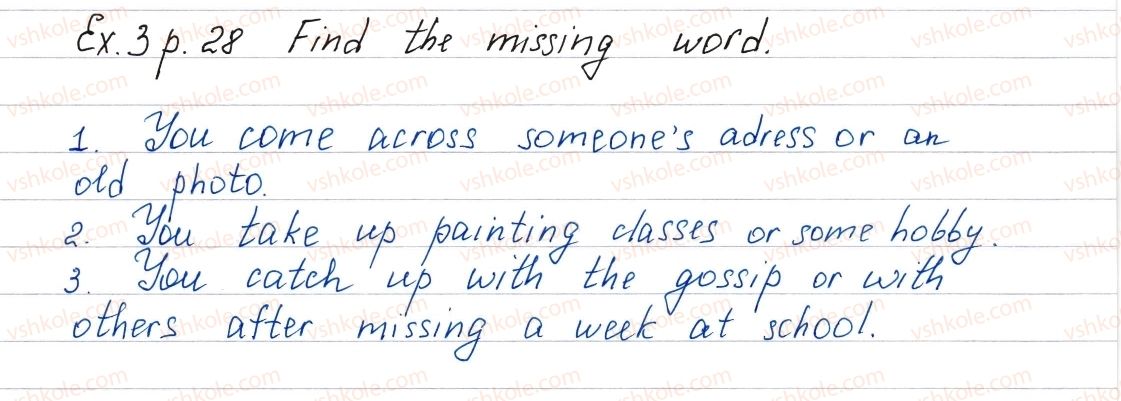 Ex. 3 p. 28 Find the missing word.
1. You come across someone's adress or an
old photo.
2. You take up painting classes or some hobby.
3. You catch up with the gossip or with
others after missing a week at school.